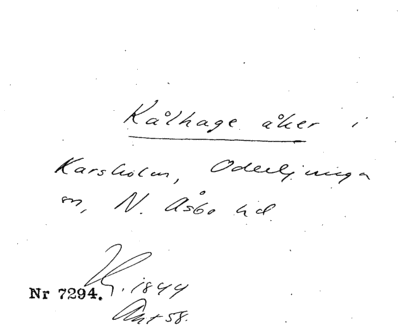 Kålhage åker i
Karsholm, Oderljunga
sn, N. Åsbo hd.
1844
Nr 7294.
Ant 58.